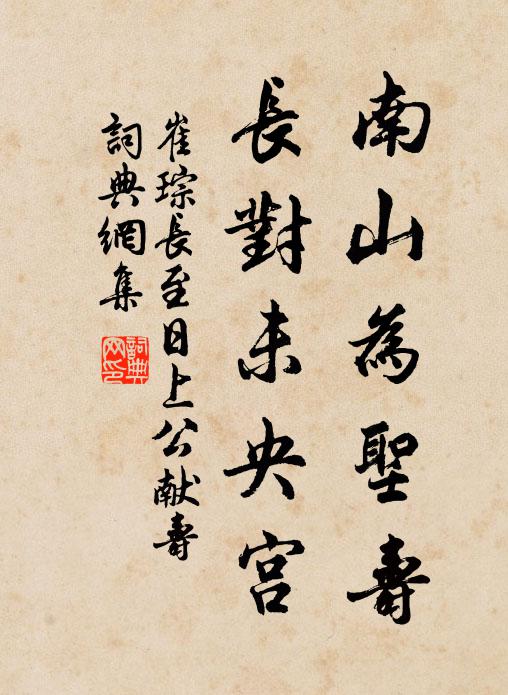 南山為聖壽
長對未央宫
崔琮長至日上公献壽
詞典網集
詞典網印